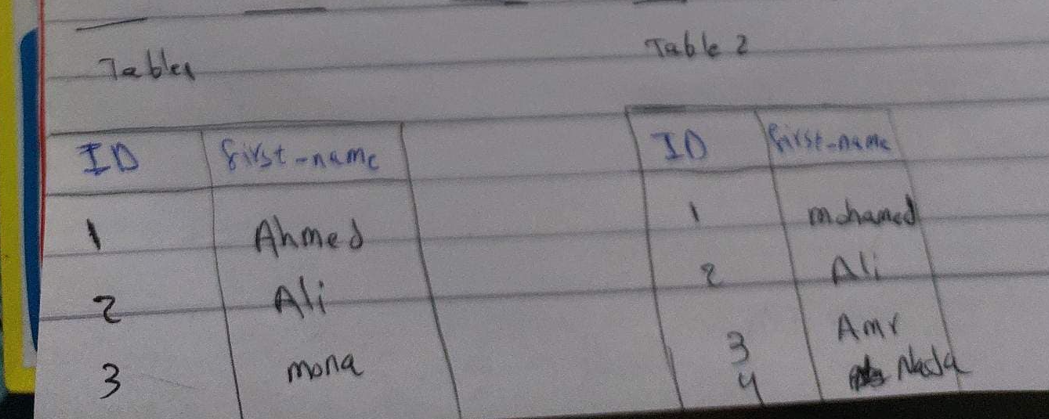 Table1
ID first-name
1 Ahmed
2 Ali
3 mona
Table 2
ID first-name
1 mohamed
2 Ali
3 Amr
4